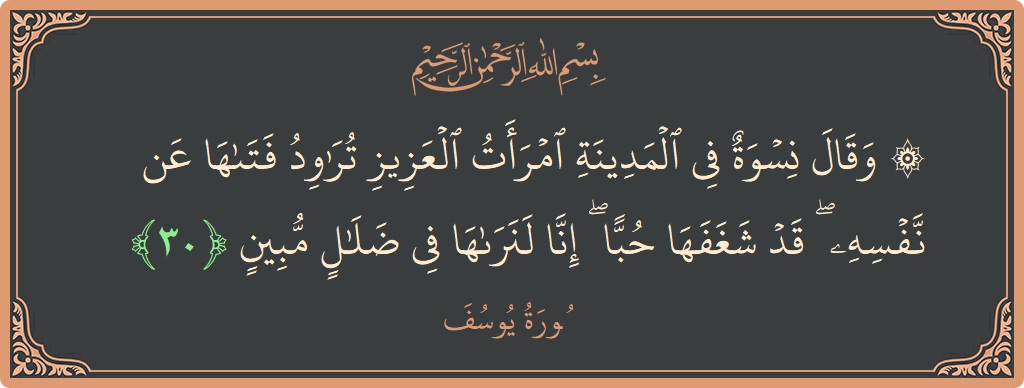 بِسْمِ اللَّهِ الرَّحْمَٰنِ الرَّحِيمِ
۞ وَقَالَ نِسْوَةٌ فِى ٱلْمَدِينَةِ ٱمْرَأَتُ ٱلْعَزِيزِ تُرَٰوِدُ فَتَىٰهَا عَن
نَّفْسِهِۦ ۖ قَدْ شَغَفَهَا حُبًّا ۖ إِنَّا لَنَرَىٰهَا فِى ضَلَٰلٍ مُّبِينٍ ﴿٣٠﴾
سُورَةُ يُوسُفَ